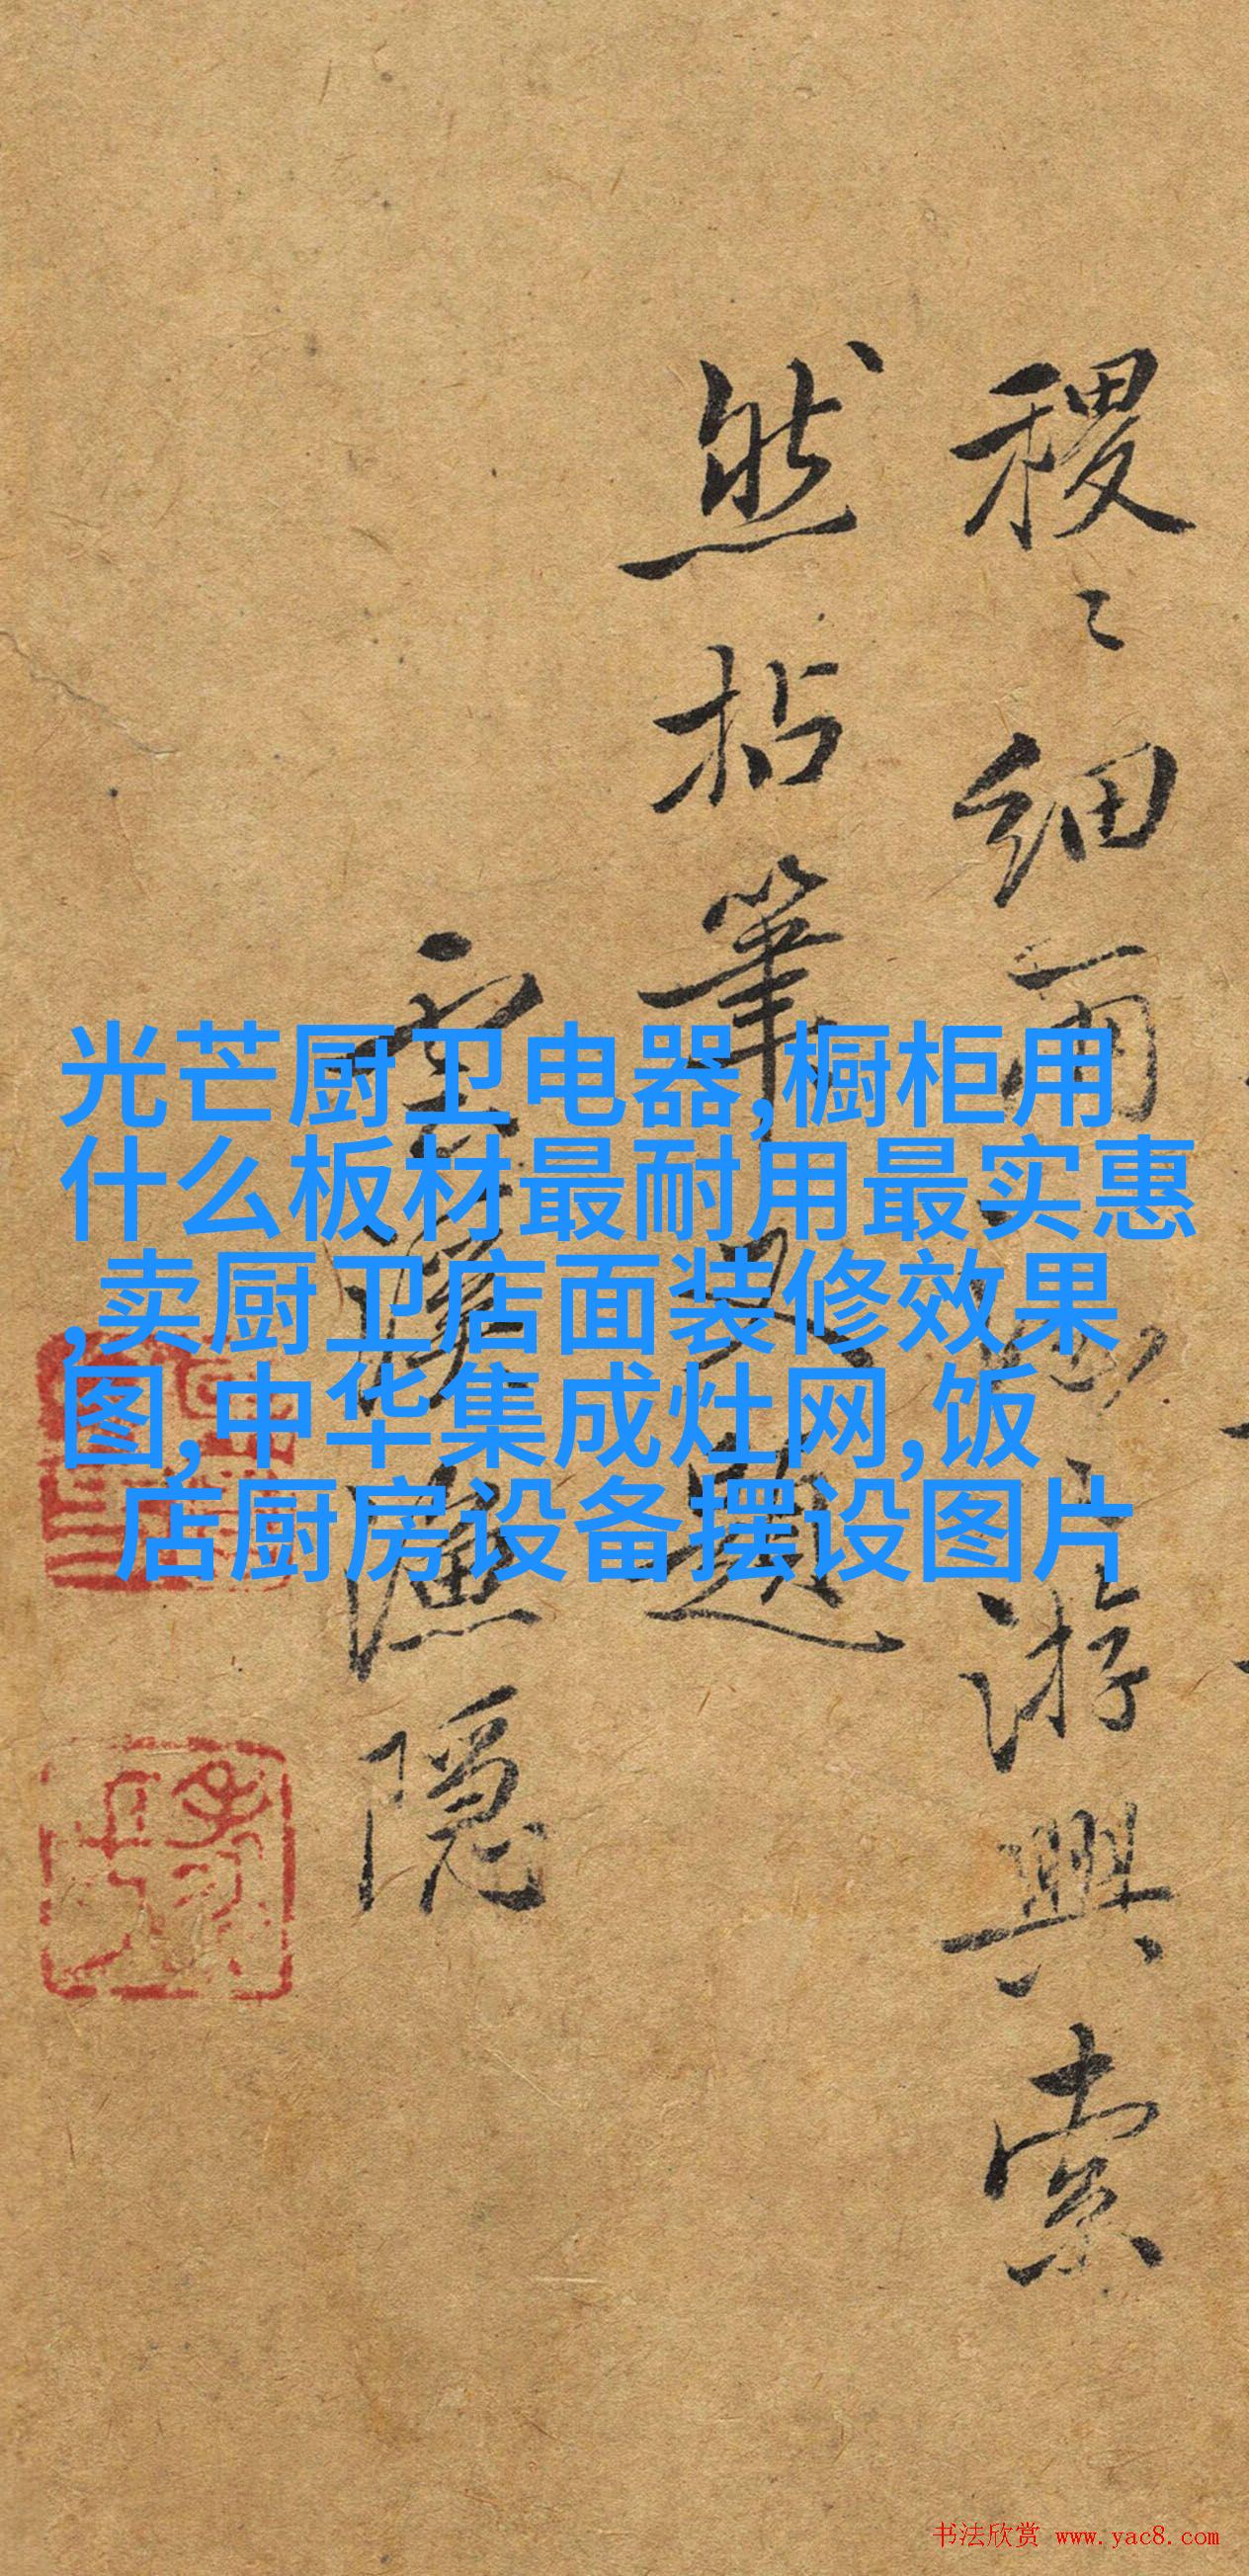 光芒厨卫电器,橱柜用
什么板材最耐用最实惠
,卖厨卫店面装修效果
图,中华集成灶网,饭
店厨房设备摆设图片
稷〻細雨
游興索
然拈筆又題
雲溪漁隠
书法欣赏 www.yac8.com